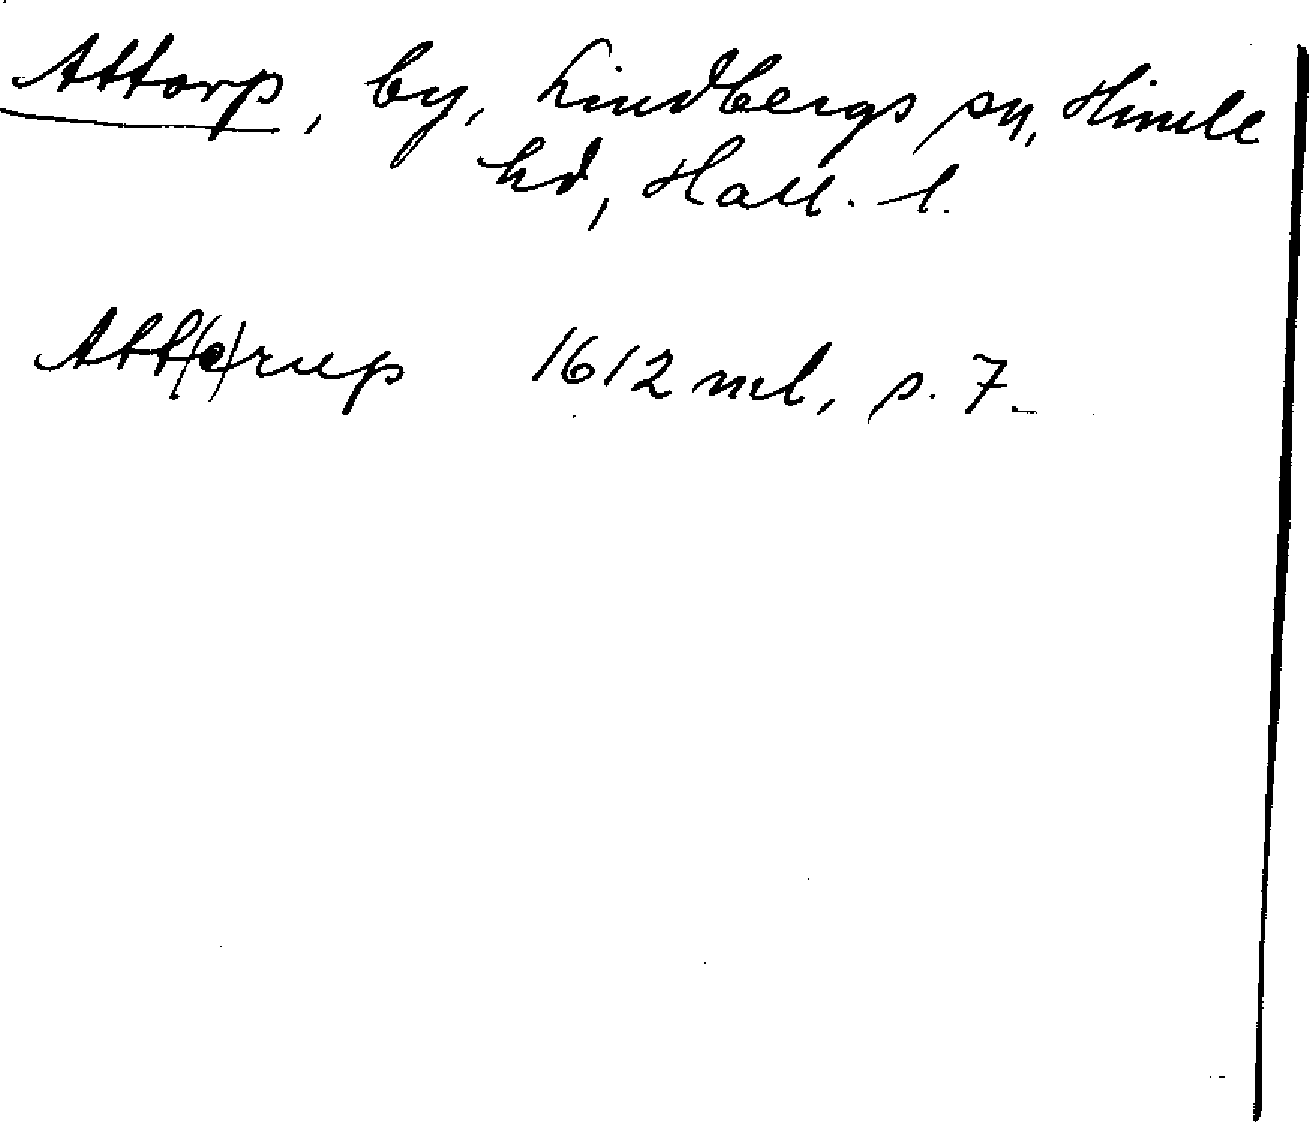 Attorp, by, Lindbergs sn, Himle
hd, Hall. l.
Att(e)rup 1612 ml, s. 7.